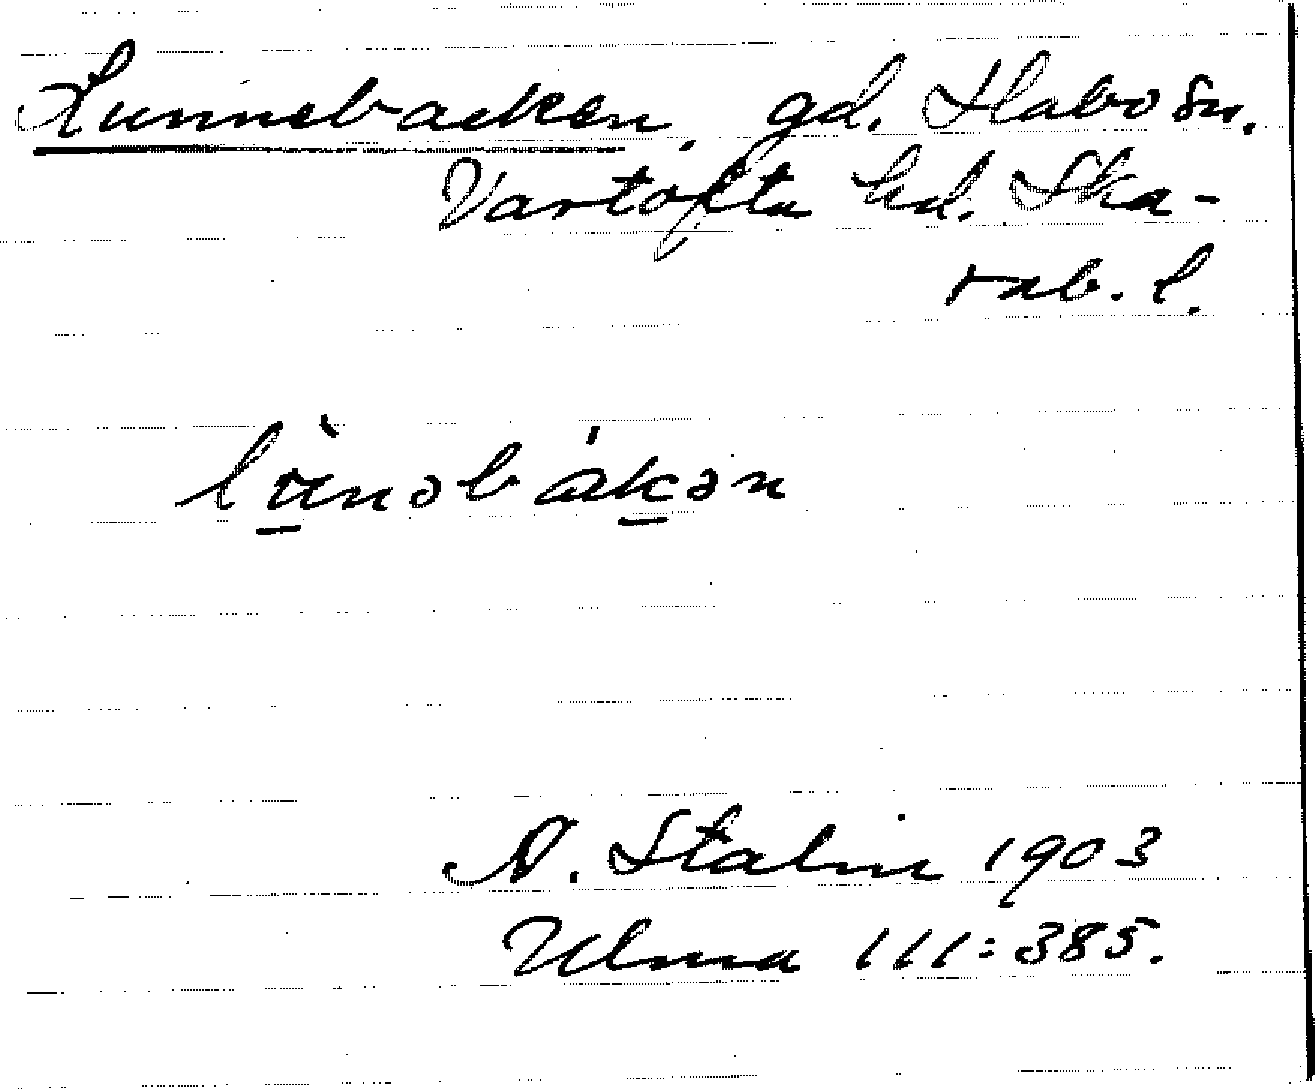 Lunnebacken, gd. Habo sn.
Vartofta hd. Ska-
rab. l.
lùnəbákən
N. Stalin 1903
Ulma 111:385.